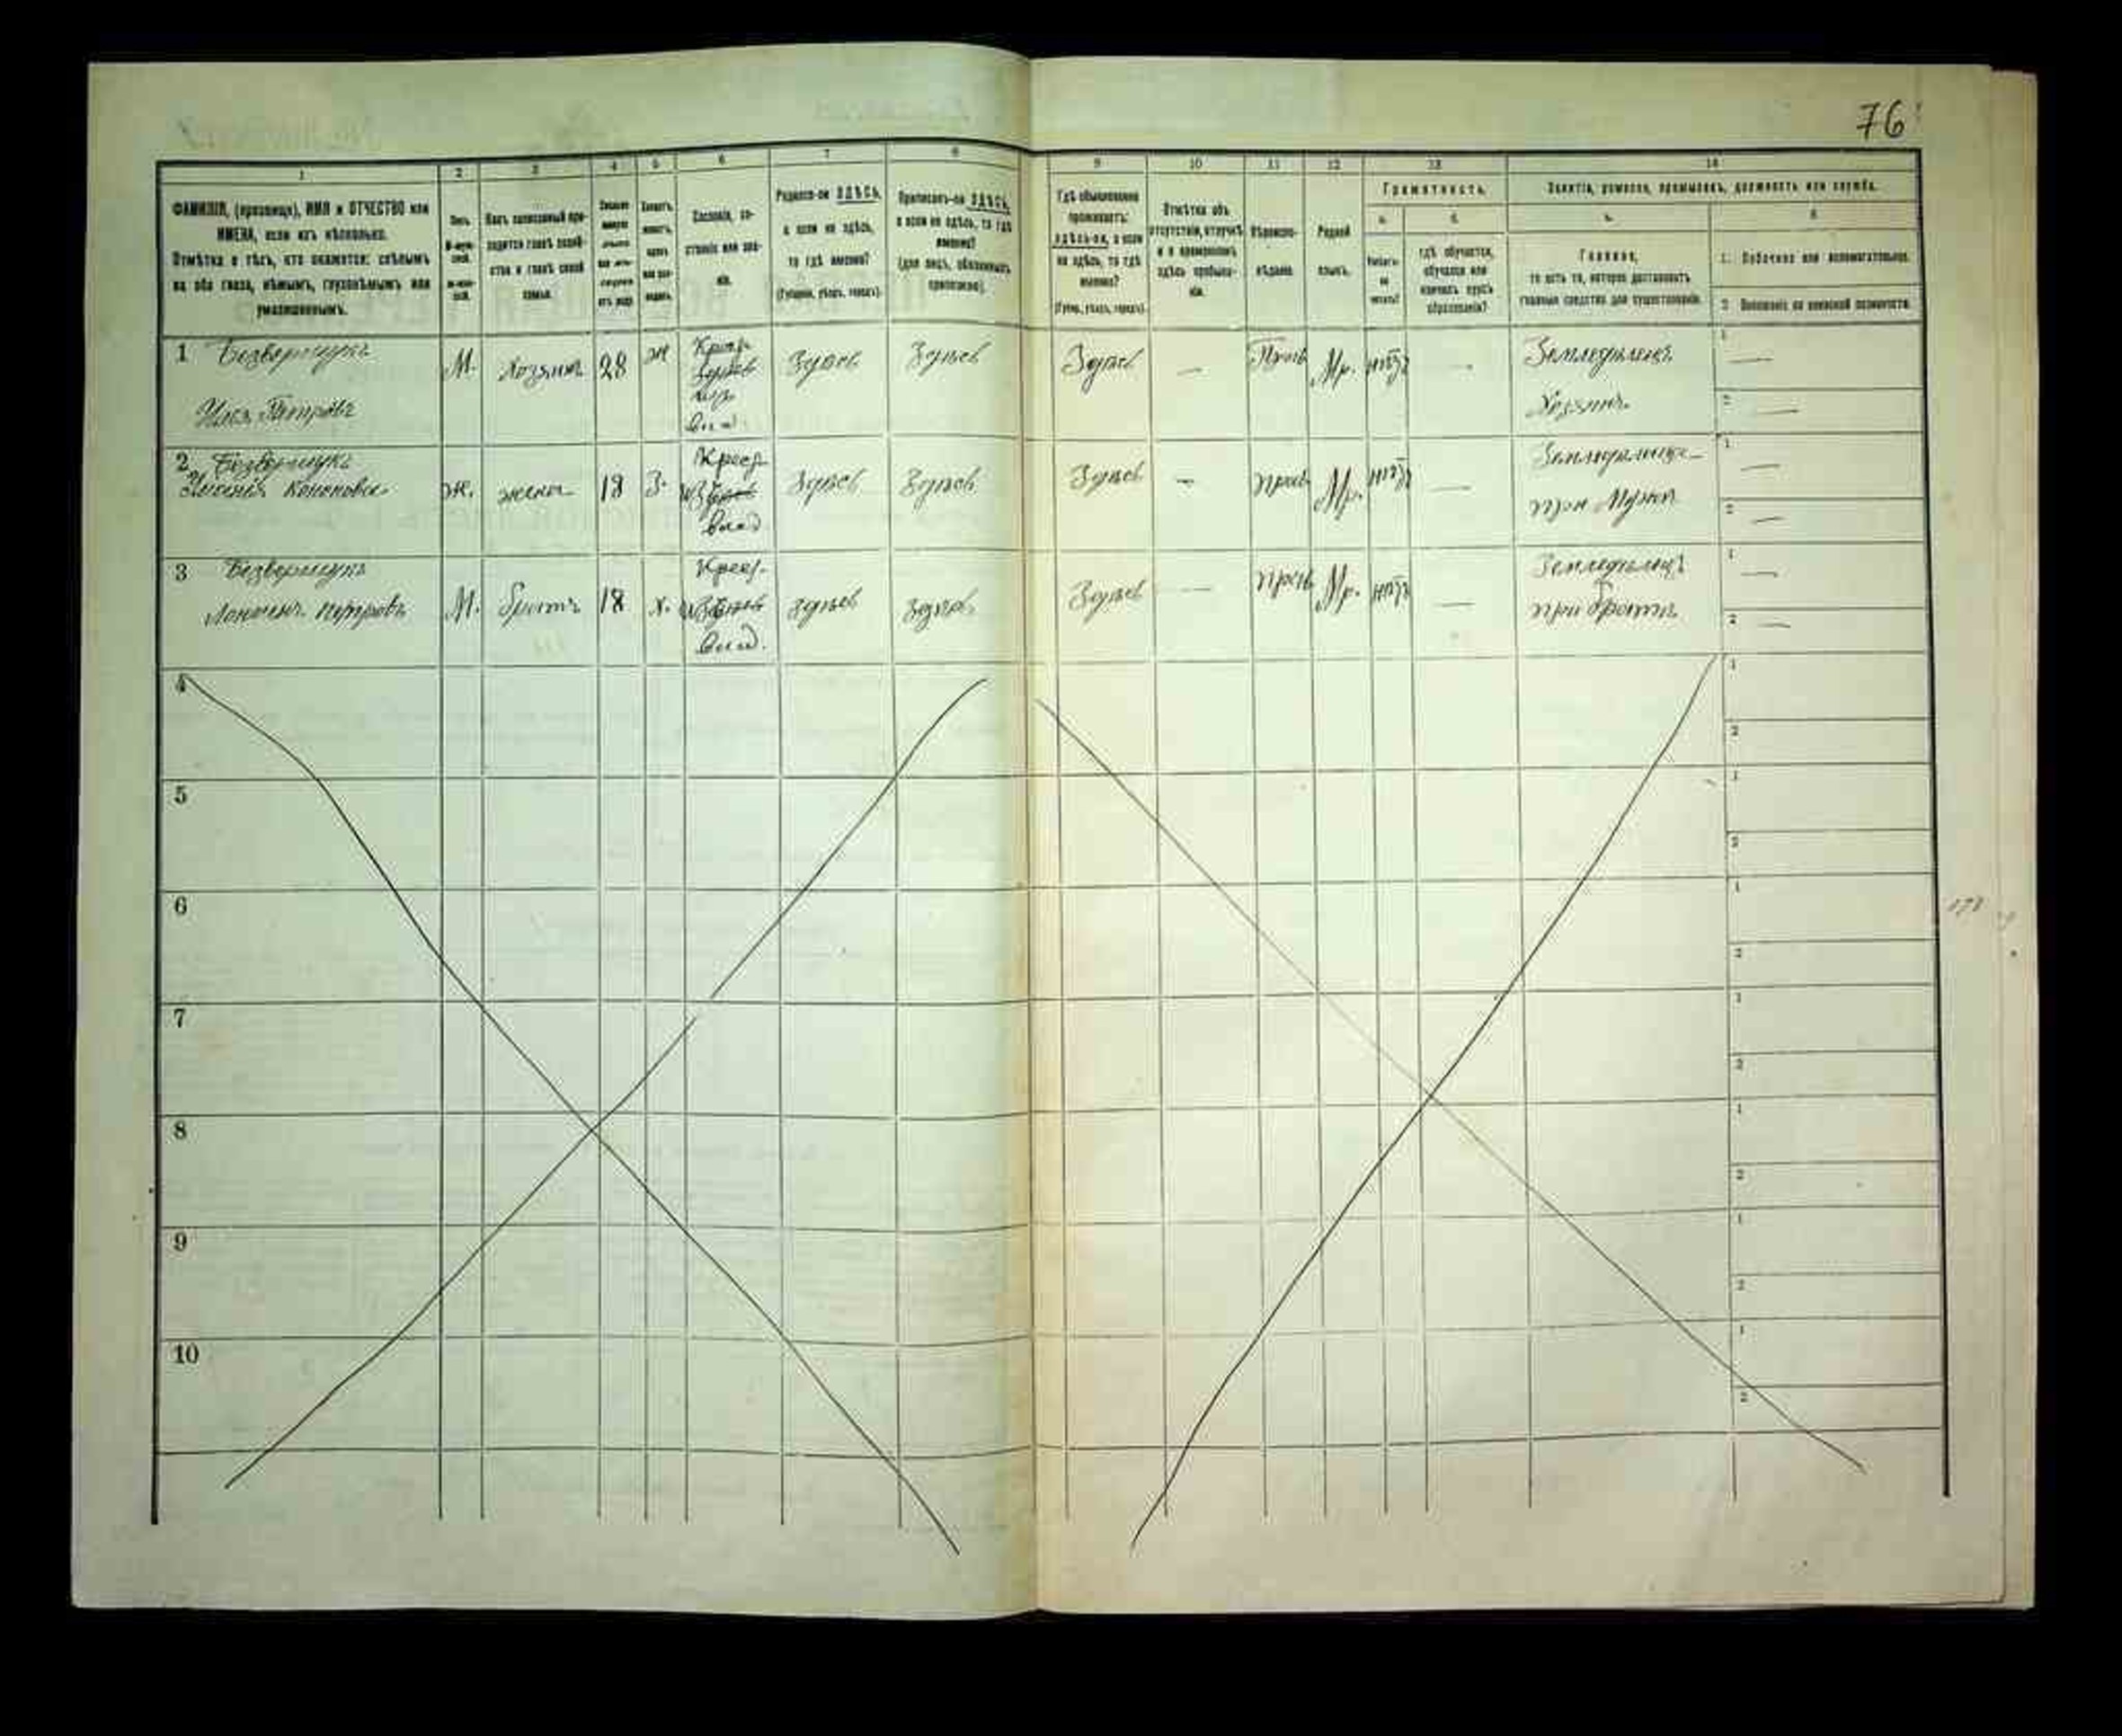 76
1 2 3 4 5 6 7 8 9 10 11 12 13 14
ФАМИЛІЯ, (прозвище), ИМЯ и ОТЧЕСТВО или
ИМЕНА, если ихъ нѣсколько.
Отмѣтка о тѣхъ, кто окажется: слѣпымъ
на оба глаза, нѣмымъ, глухонѣмымъ или
умалишеннымъ.
Полъ.
М-муж-
ской.
Ж-жен-
скій.
Какъ записанный при-
ходится главѣ хозяй-
ства и главѣ своей
семьи.
Сословіе, со-
стояніе или зва-
ніе.
Родился-ли ЗДѢСЬ,
а если не здѣсь,
то гдѣ именно?
(Губернія, уѣздъ, городъ).
Приписанъ-ли ЗДѢСЬ,
а если не здѣсь, то гдѣ
именно?
(для лицъ, обязанныхъ
припискою).
Гдѣ обыкновенно
проживаетъ:
здѣсь-ли, а если
не здѣсь, то гдѣ
именно?
(Губер., уѣздъ, городъ).
Отмѣтка объ
отсутствіи, отлучкѣ
и о временномъ
здѣсь пребыва-
ніи.
Вѣроиспо-
вѣданіе.
Родной
языкъ.
Грамотность.
а. б.
Умѣетъ-
ли
читать?
гдѣ обучается,
обучался или
кончилъ курсъ
образованія?
Занятіе, ремесло, промыселъ, должность или служба.
а. б.
Главное,
то есть то, которое доставляетъ
главныя средства для существованія.
1. Побочное или вспомогательное.
2. Положеніе по воинской повинности.
1 Безверщукъ М. Хозяинъ 28 ж Крест. Здѣсь Здѣсь Здѣсь — Прав Мр. нѣтъ — Земледѣлецъ 1 —
Илья Петровъ Хозяинъ 2 —
2 Безверщукъ Ж. жена 18 З. Крест Здѣсь Здѣсь Здѣсь — прав Мр. нѣтъ — 1 —
Кононова влад при Мужѣ 2 —
3 Безверщукъ М. братъ 18 х. Крест. здѣсь здѣсь Здѣсь — прав Мр. нѣтъ — Земледѣлецъ 1 —
Петровъ влад. при братѣ 2 —
4 1
2
5 1
2
6 1
2
7 1
2
8 1
2
9 1
2
10 1
2